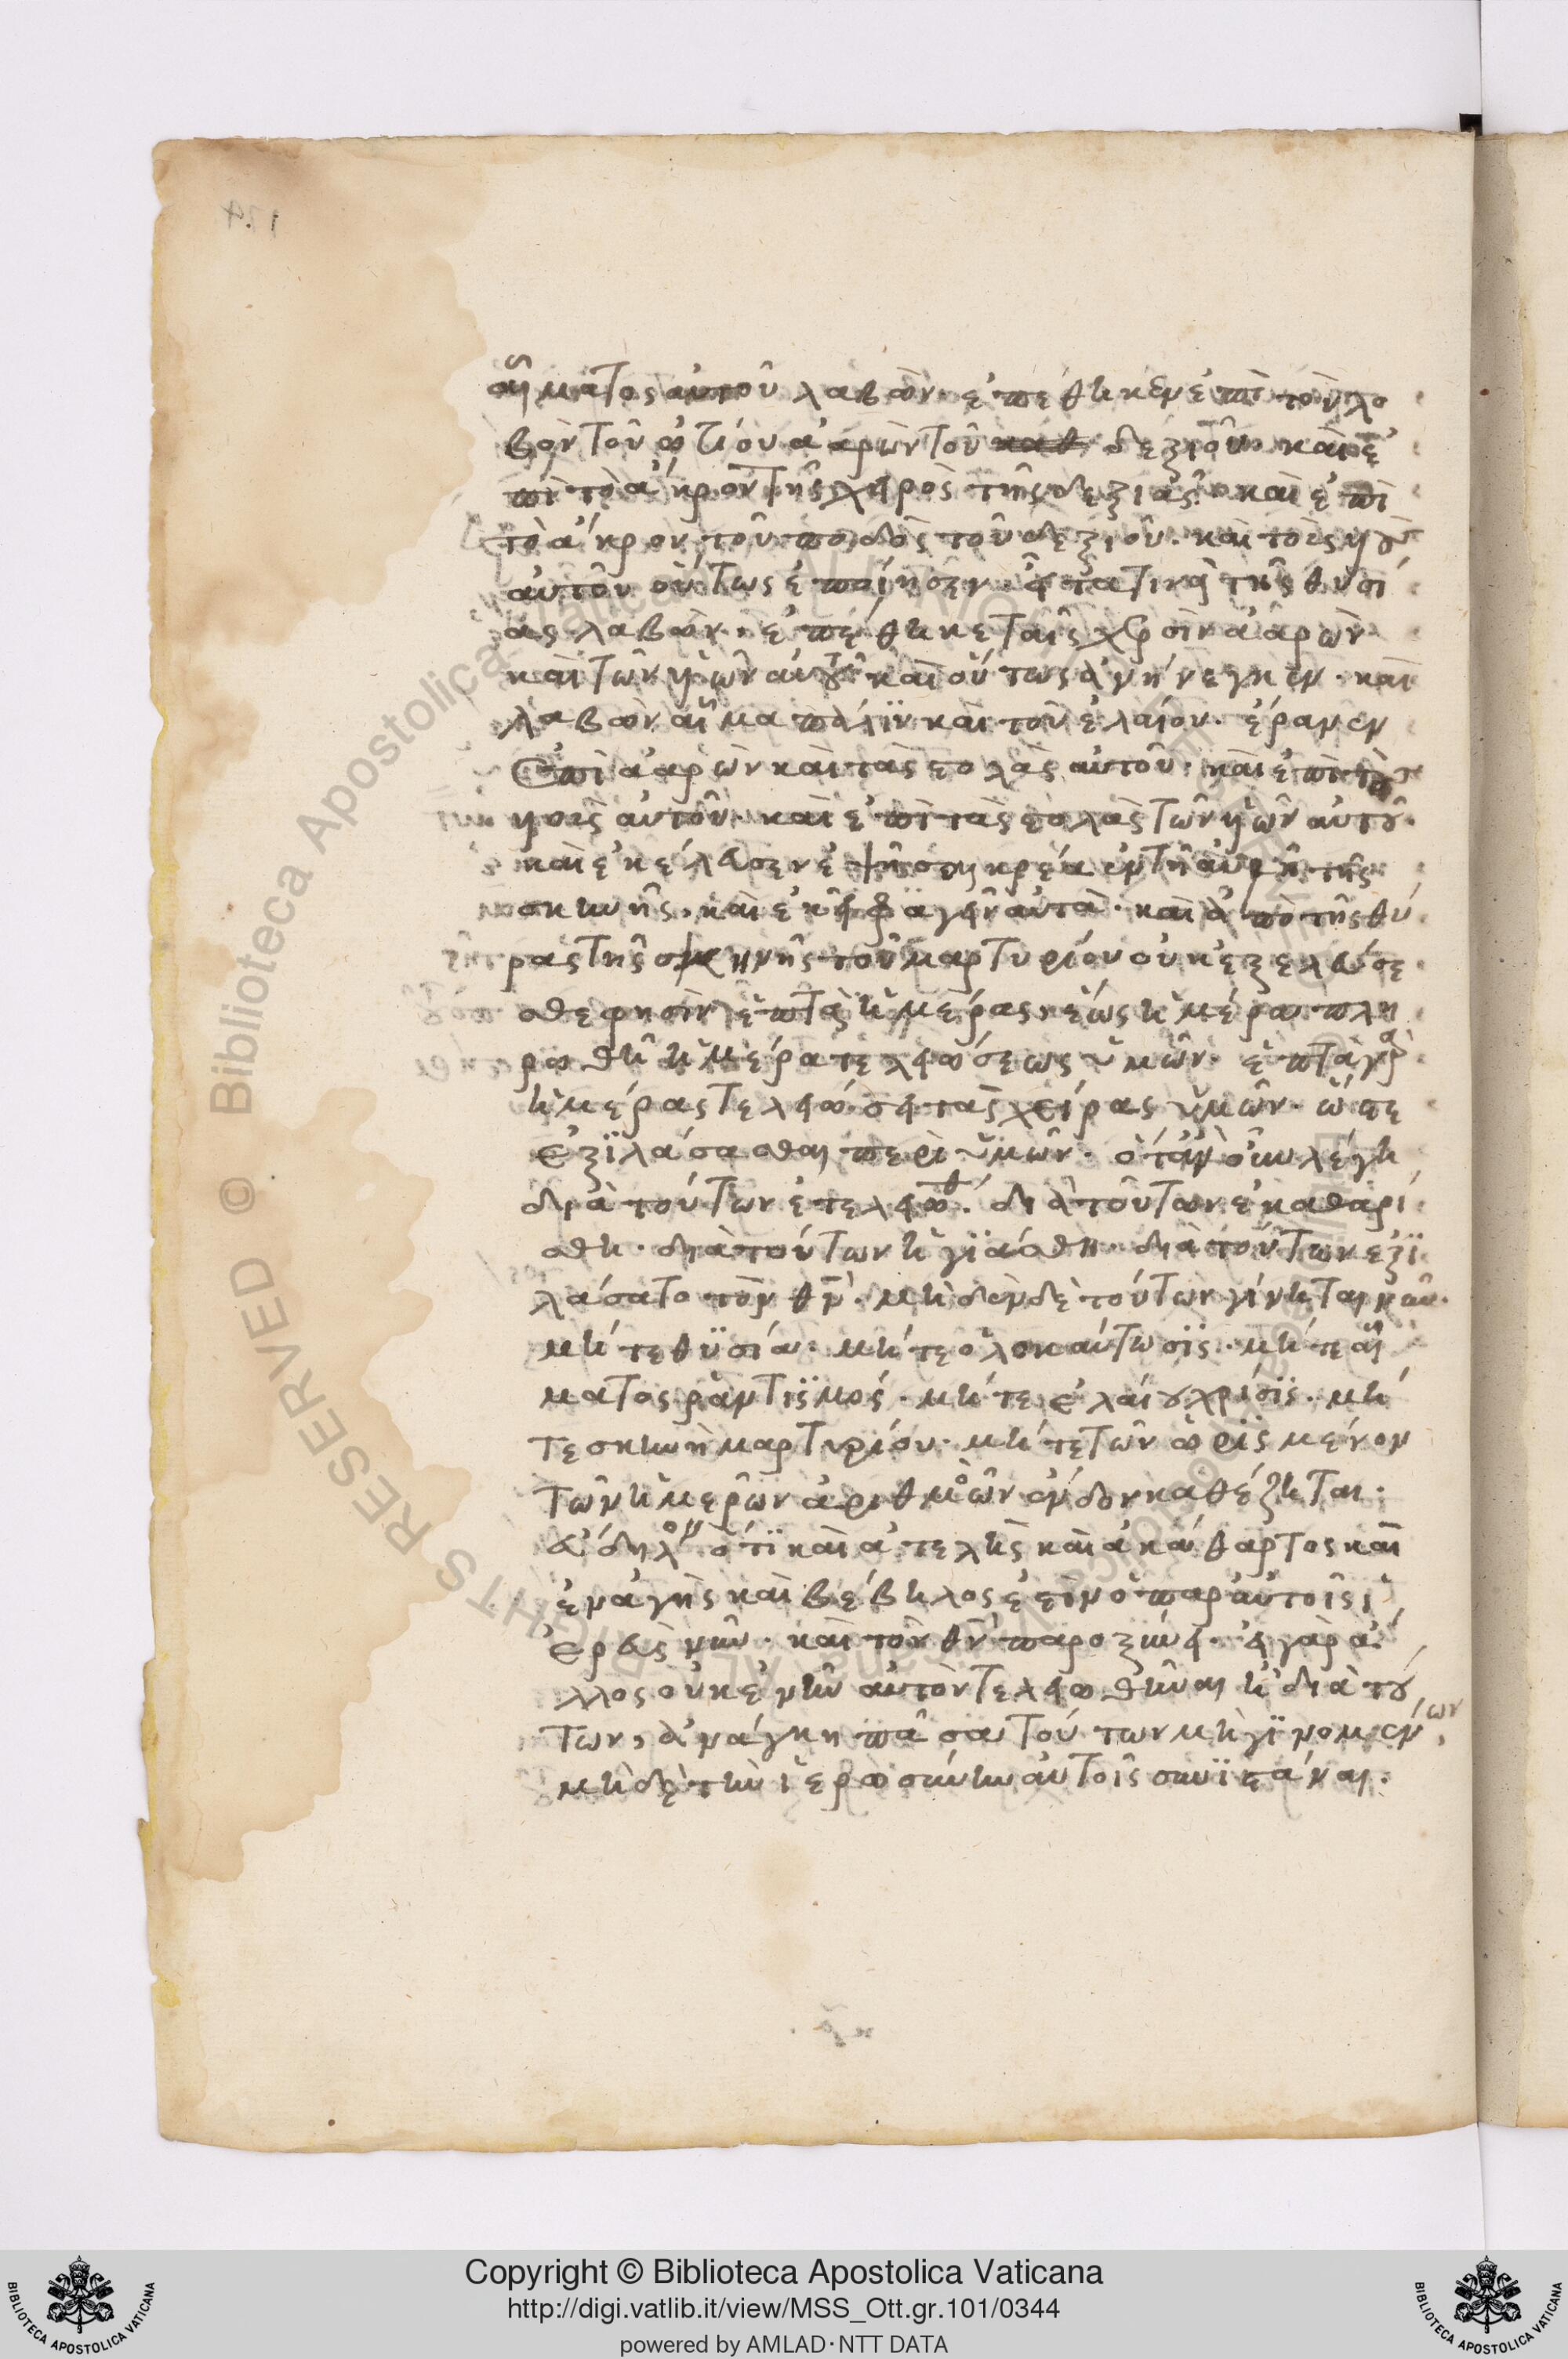 αἵματος αὐτοῦ λαβὼν. ἐπέθηκεν ἐπὶ τὸν λο
βὸν τοῦ ὠτίου ἀαρὼν τοῦ δεξιοῦ. καὶ ἐ
πὶ τὸ ἄκρον τῆς χειρὸς τῆς δεξιᾶς. καὶ ἐπὶ
τὸ ἄκρον τοῦ ποδὸς τοῦ δεξιοῦ. καὶ τοῖς υἱοῖς
αὐτοῦ οὕτως ἐποίησεν. εἶτά τινα τῆς θυσί
ας λαβὼν. ἐπέθηκε ταῖς χερσὶν ἀαρὼν
καὶ τῶν υἱῶν αὐτοῦ καὶ οὕτως ἀνήνεγκεν. καὶ
λαβὼν αἷμα πάλϊν καὶ τοῦ ἐλαίου. ἔρανεν
ἐπὶ ἀαρὼν καὶ τὰς στολὰς αὐτοῦ. καὶ ἐπὶ τοὺς
υἱοὺς αὐτοῦ. καὶ ἐπὶ τὰς στολὰς τῶν υἱῶν αὐτοῦ.
καὶ ἐκέλευσεν ἑψῆσαι κρέα ἐν τῆ αὐλῆ τῆς
σκηνῆς. καὶ ἐκεῖ φαγεῖν αὐτά. καὶ ἀπὸ τῆς θύ
ρας τῆς σκηνῆς τοῦ μαρτυρίου οὐκ ἐξελεύσε
σθε φησὶν ἑπτὰ ἡμέρας. ἕως ἡμέρα πλη
ρωθῆ ἡμέρα τελειώσεως ὑμῶν. ἑπτὰ γὰρ
ἡμέρας τελειώσει τὰς χεῖρας ὑμῶν. ὥστε
ἐξϊλάσασθαι περὶ ὑμῶν. ὅταν οὖν λέγη
διὰ τούτων ἐτελειώθ. διὰ τούτων ἐκαθαρί
σθη. διὰ τούτων ἡγϊάσθη. διὰ τούτων ἐξϊ
λάσατο τὸν θν. μηδὲν δὲ τούτων γίνηται νῦν.
μήτε θϋσία. μήτε ὁλοκαύτωσϊς. μήτε αἵ
ματος ῥαντϊσμός. μήτε ἐλαίου χρίσϊς. μή
τε σκηνὴ μαρτυρίου. μήτε τῶν ὡρϊσμένον
τῶν ἡμερῶν ἀριθμὸν ἔνδον καθέζηται.
εὔδηλον ὅτϊ καὶ ἀτελὴς καὶ ἀκάθαρτος καὶ
ἐναγὴς καὶ βέβηλος ἐστὶν ὁ παρ αὐτοῖς ἱ
ερεὺς νῦν. καὶ τὸν θν παροξύνει. εἰ γὰρ ἄ
λλος οὐκ ἐνῆν αὐτὸν τελειωθῆναι ἢ διὰ τού
των, ἀνάγκη πᾶσα τούτων μὴ γϊνομένων,
μηδὲ τὴν ἱερωσύνην αὐτοῖς συνϊστάναι.
Copyright © Biblioteca Apostolica Vaticana
http://digi.vatlib.it/view/MSS_Ott.gr.101/0344
powered by AMLAD·NTT DATA